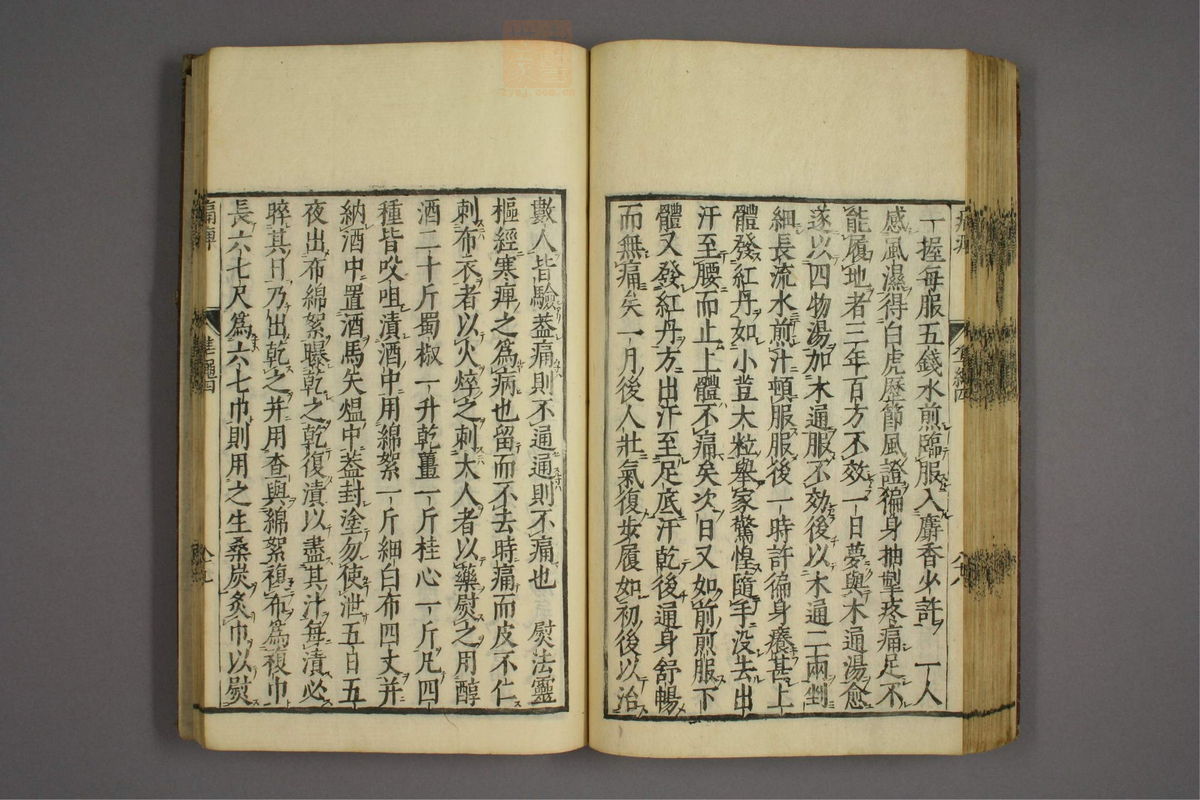 一握每服五錢水煎臨服入麝香少許　一人
感風濕得白虎歷節風證徧身抽掣疼痛足不
能履地者三年百方不效一日夢與木通湯愈
遂以四物湯加木通服不効後以木通二兩剉
細長流水煎汁頓服服後一時許徧身癢甚上
體發紅丹如小豆大粒舉家驚惶隨手沒去出
汗至腰而止上體不痛矣次日又如前煎服下
體又發紅丹方出汗至足底汗乾後通身舒暢
而無痛矣一月後人壯氣復步履如初後以治
數人皆驗葢痛則不通通則不痛也　熨法靈
樞經寒痺之爲病也留而不去時痛而皮不仁
刺布衣者以火焠之刺大人者以藥熨之用醇
酒二十斤蜀椒一升乾薑一斤桂心一斤凡四
種皆㕮咀漬酒中用綿絮一斤細白布四丈并
納酒中置酒馬矢熅中葢封塗勿使泄五日五
夜出布綿絮曝乾之乾復漬以盡其汁每漬必
晬其日乃出乾之并用查與綿絮複布爲複巾
長六七尺爲六七巾則用之生桑炭炙巾以熨